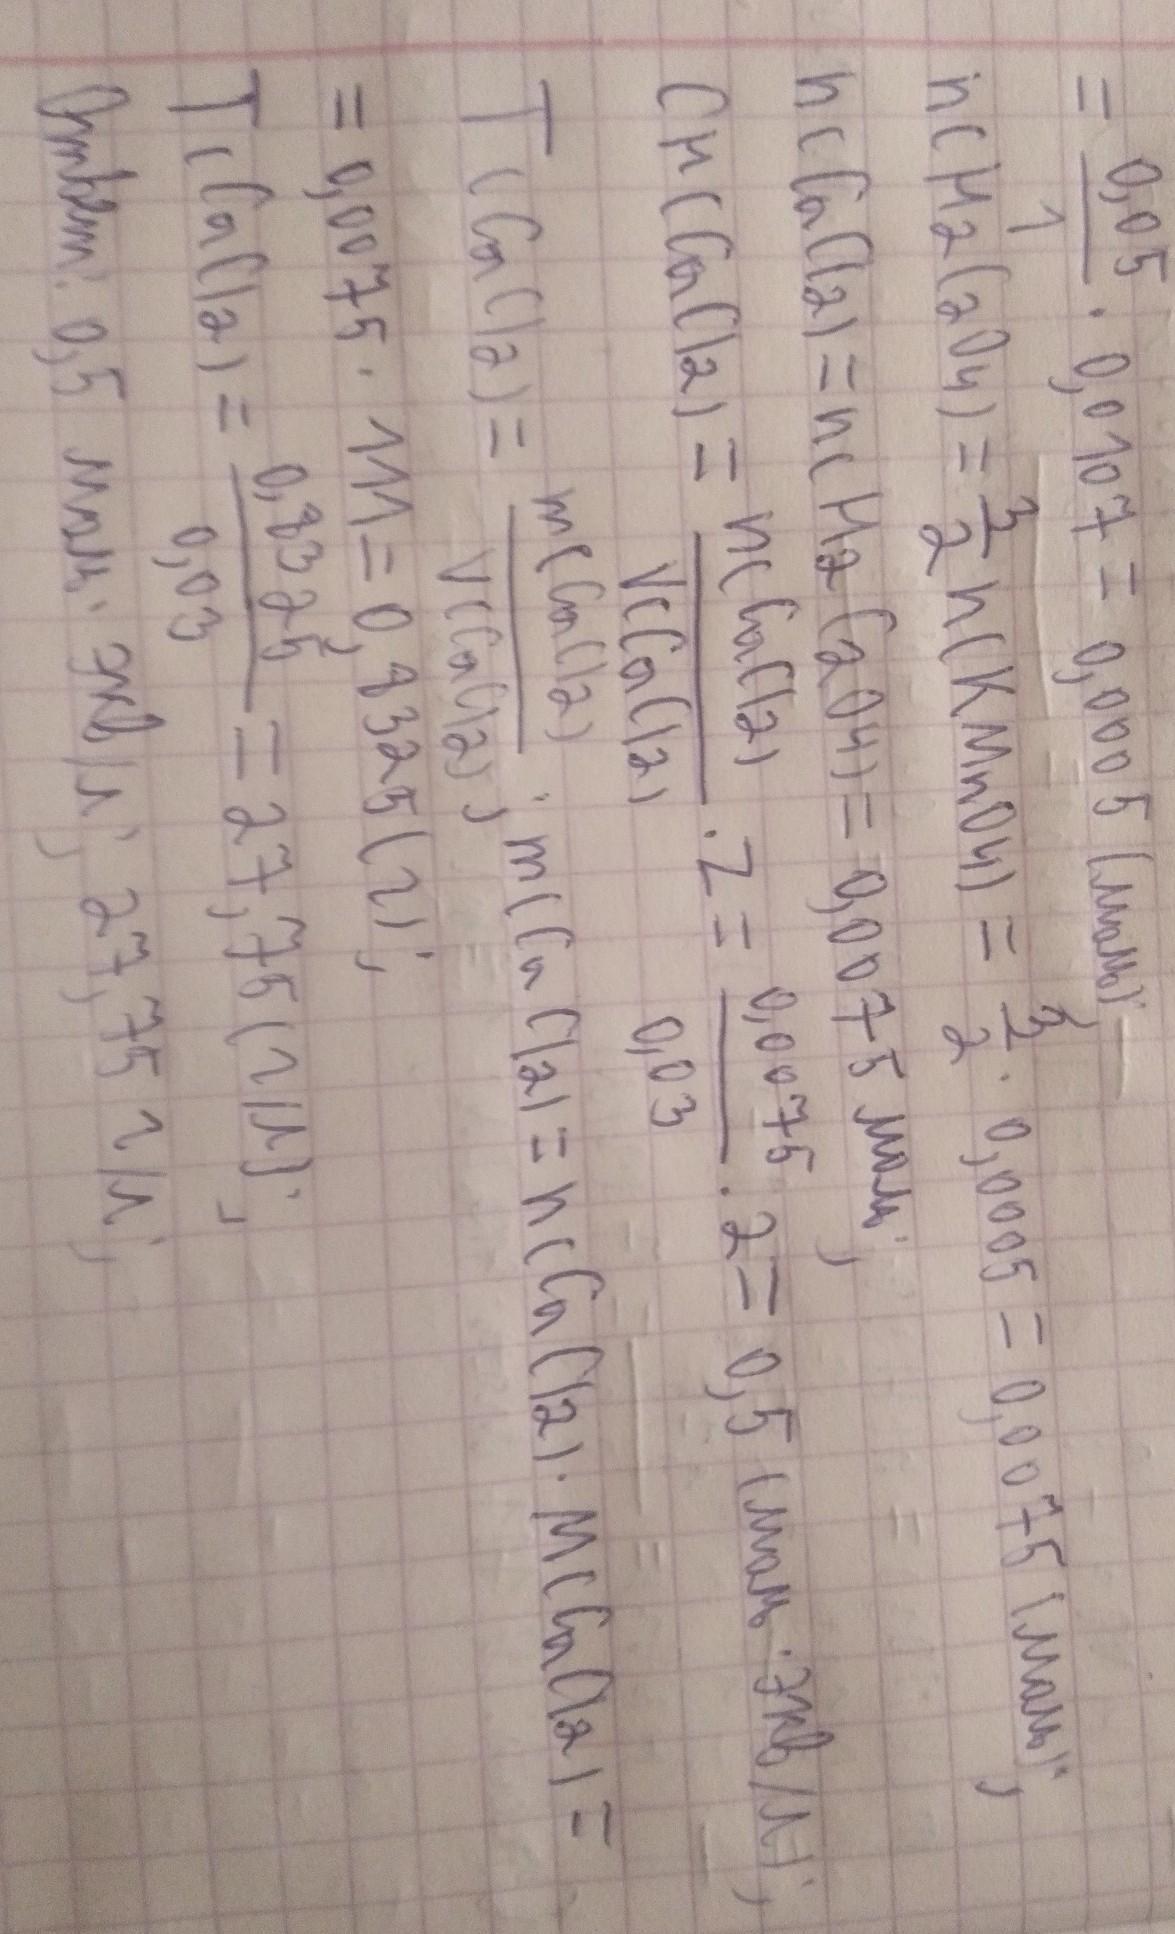 = 0,05/1 · 0,0107 = 0,0005 (моль)
n(H2C2O4) = 3/2 n(KMnO4) = 3/2 · 0,0005 = 0,0075 (моль);
n(CaCl2) = n(H2C2O4) = 0,0075 моль;
CH(CaCl2) = n(CaCl2)/V(CaCl2) · Z = 0,0075/0,03 · 2 = 0,5 (моль·экв/л);
T(CaCl2) = m(CaCl2)/V(CaCl2); m(CaCl2) = n(CaCl2) · M(CaCl2) =
= 0,0075 · 111 = 0,8325 (г);
T(CaCl2) = 0,8325/0,03 = 27,75 (г/л);
Ответ: 0,5 моль·экв/л; 27,75 г/л;